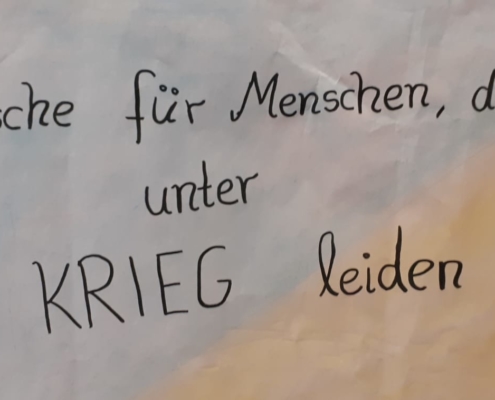 sche für Menschen, d
unter
KRIEG leiden